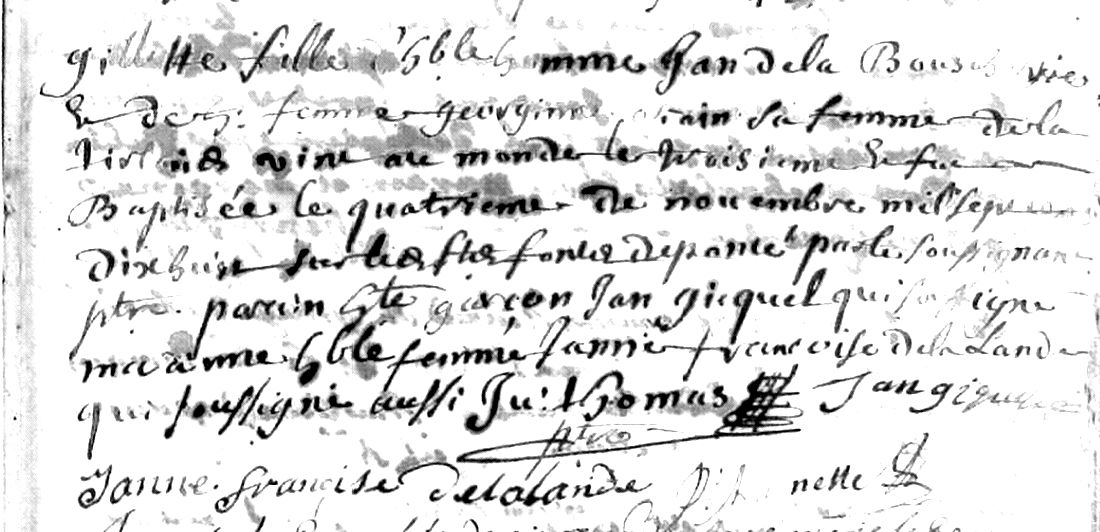 gillette fille d'hble homme Jan de la Bous
& de h: femme georginne sa femme de la
vint au monde le troisieme & fut
Baptisée le quatrieme de nouembre mil sept cent
dixhuit sur les sts fonts par le soussignant
ptre. parain hte garçon Jan gicquel qui soussigne
maranne hble femme Janne francoise de la Lande
qui soussigne aussi Ju: thomas Jan gicquel
ptre
Janne. francoise delalande nette